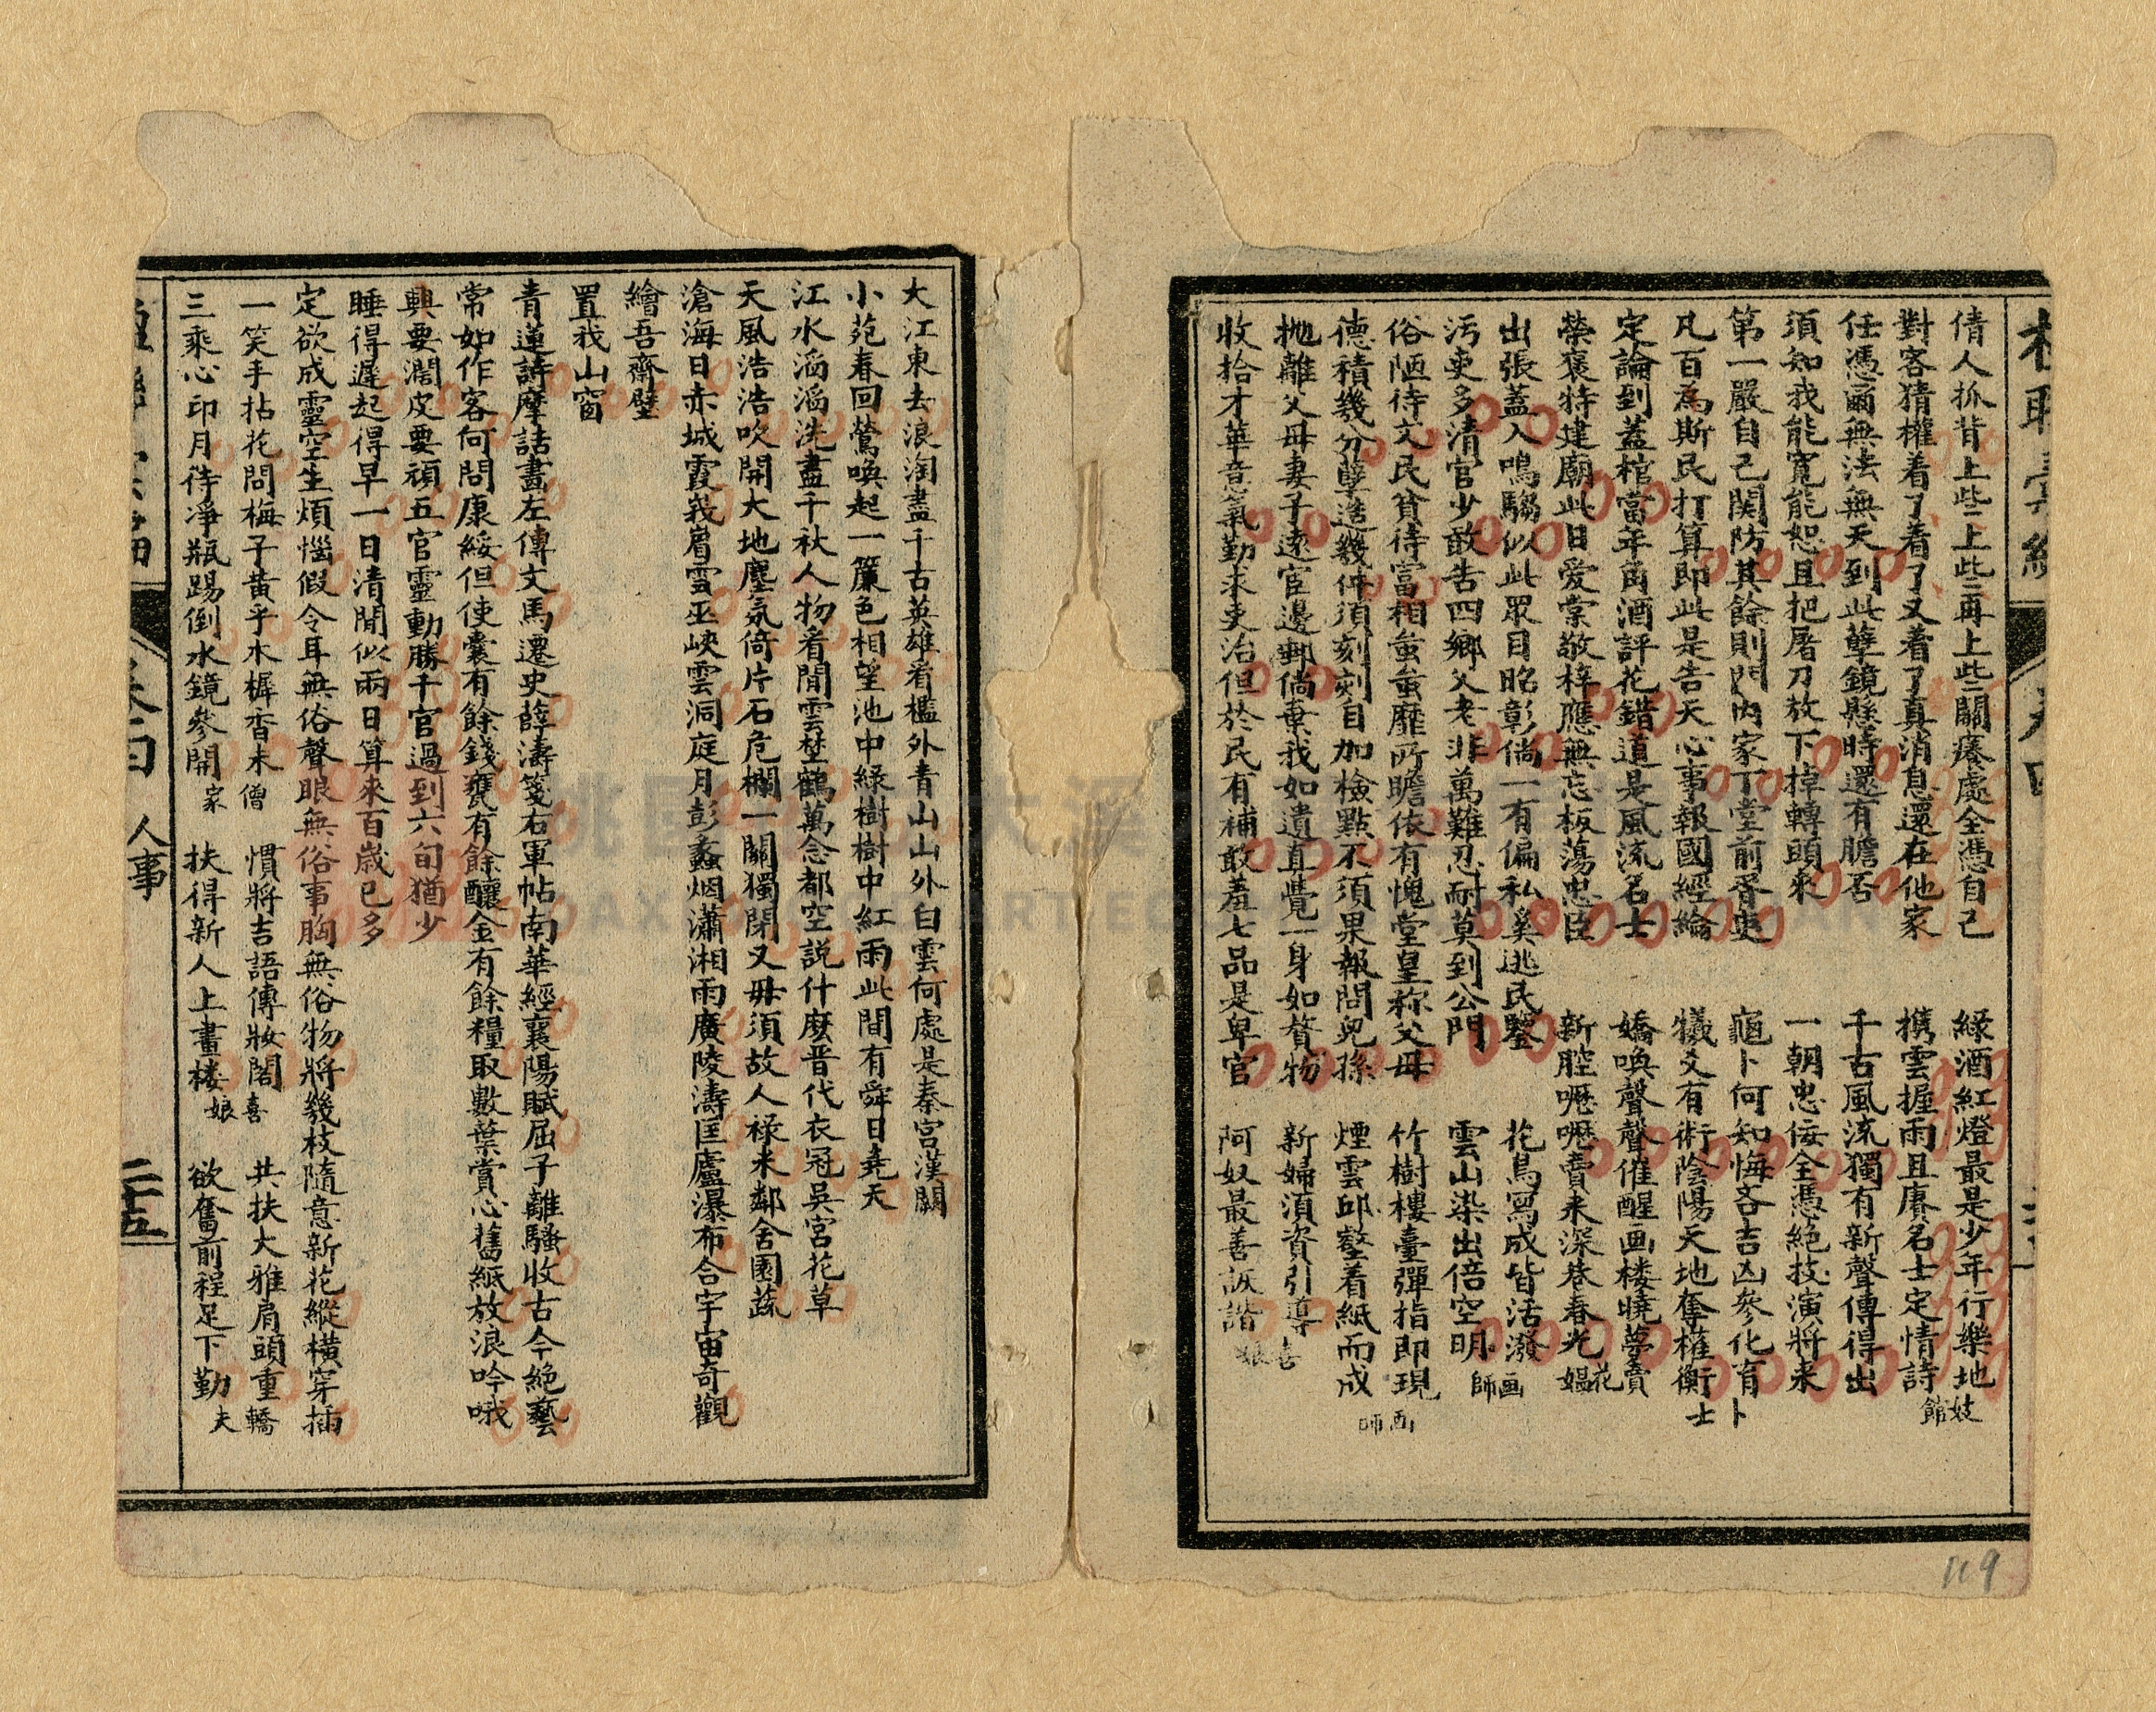 倩人抓背上些上些再上些關癢處全憑自己
緑酒紅燈最是少年行樂地 妓館
對客猜權着了着了又着了真消息還在他家
携雲握雨且賡名士定情詩
任憑爾無法無天到此孽鏡懸時還有膽否
千古風流獨有新聲傳得出
須知我能寬能恕且把屠刀放下掉轉頭來
一朝忠佞全憑絕技演將来
第一嚴自己関防其餘則門內家丁堂前胥吏
龜卜何知悔吝吉凶參化育 卜士
凡百為斯民打算即此是告天心事報國經綸
犧爻有術陰陽天地奪權衡
定論到蓋棺當年角酒評花錯道是風流名士
嬌喚聲聲催醒画楼曉夢賣
榮褒特建廟此日愛棠敬梓應無忘板蕩忠臣
新腔嚦嚦賣来深巷春光 花媪
出張蓋入鳴騶似此眾目昭彰倘一有偏私奚逃民鑒
花鳥寫成皆活潑 画師
污吏多清官少敢告四鄉父老非萬難忍耐莫到公門
雲山染出倍空明
俗陋待文民貧待富相蚩蚩靡所瞻依有愧堂皇稱父母
竹樹樓臺彈指即現 画師
德積幾分孽造幾件須刻刻自加檢點不須果報問兒孫
煙雲邱壑着紙而成
抛離父母妻子遠宦邊郵倘棄我如遺直覺一身如贅物
新婦須資引導 喜娘
收拾才華意氣勤求吏治但於民有補敢羞七品是卑官
阿奴最善詼諧
119
大江東去浪淘盡千古英雄看檻外青山山外白雲何處是秦宮漢闕
小苑春回鶯喚起一簾色相望池中緑樹樹中紅雨此間有舜日堯天
江水滔滔洗盡千秋人物看閒雲埜鶴萬念都空説什麼晋代衣冠吳宮花草
天風浩浩吹開大地塵氛倚片石危欄一關獨閉又毋須故人禄米鄰舍園蔬
滄海日赤城霞峩眉雪巫峽雲洞庭月彭蠡烟瀟湘雨廣陵濤匡廬瀑布合宇宙奇觀
繪吾齋壁
置我山窗
青蓮詩摩詰畫左傳文馬遷史薛濤箋右軍帖南華經襄陽賦屈子離騷收古今絕藝
常如作客何問康綏但使囊有餘錢甕有餘釀釜有餘糧取數葉賞心舊紙放浪吟哦
興要濶皮要頑五官靈動勝千官過到六旬猶少
睡得遲起得早一日清閒似兩日算來百歲已多
定欲成靈空生煩惱假令耳無俗聲眼無俗事胸無俗物將幾枝隨意新花縱橫穿插
一笑手拈花問梅子黃乎木樨香未 僧家
慣將吉語傳妝閣 喜娘
共扶大雅肩頭重 轎夫
三乘心印月待凈瓶踢倒水鏡參開
扶得新人上畫楼
欲奮前程足下勤
人事
二十五